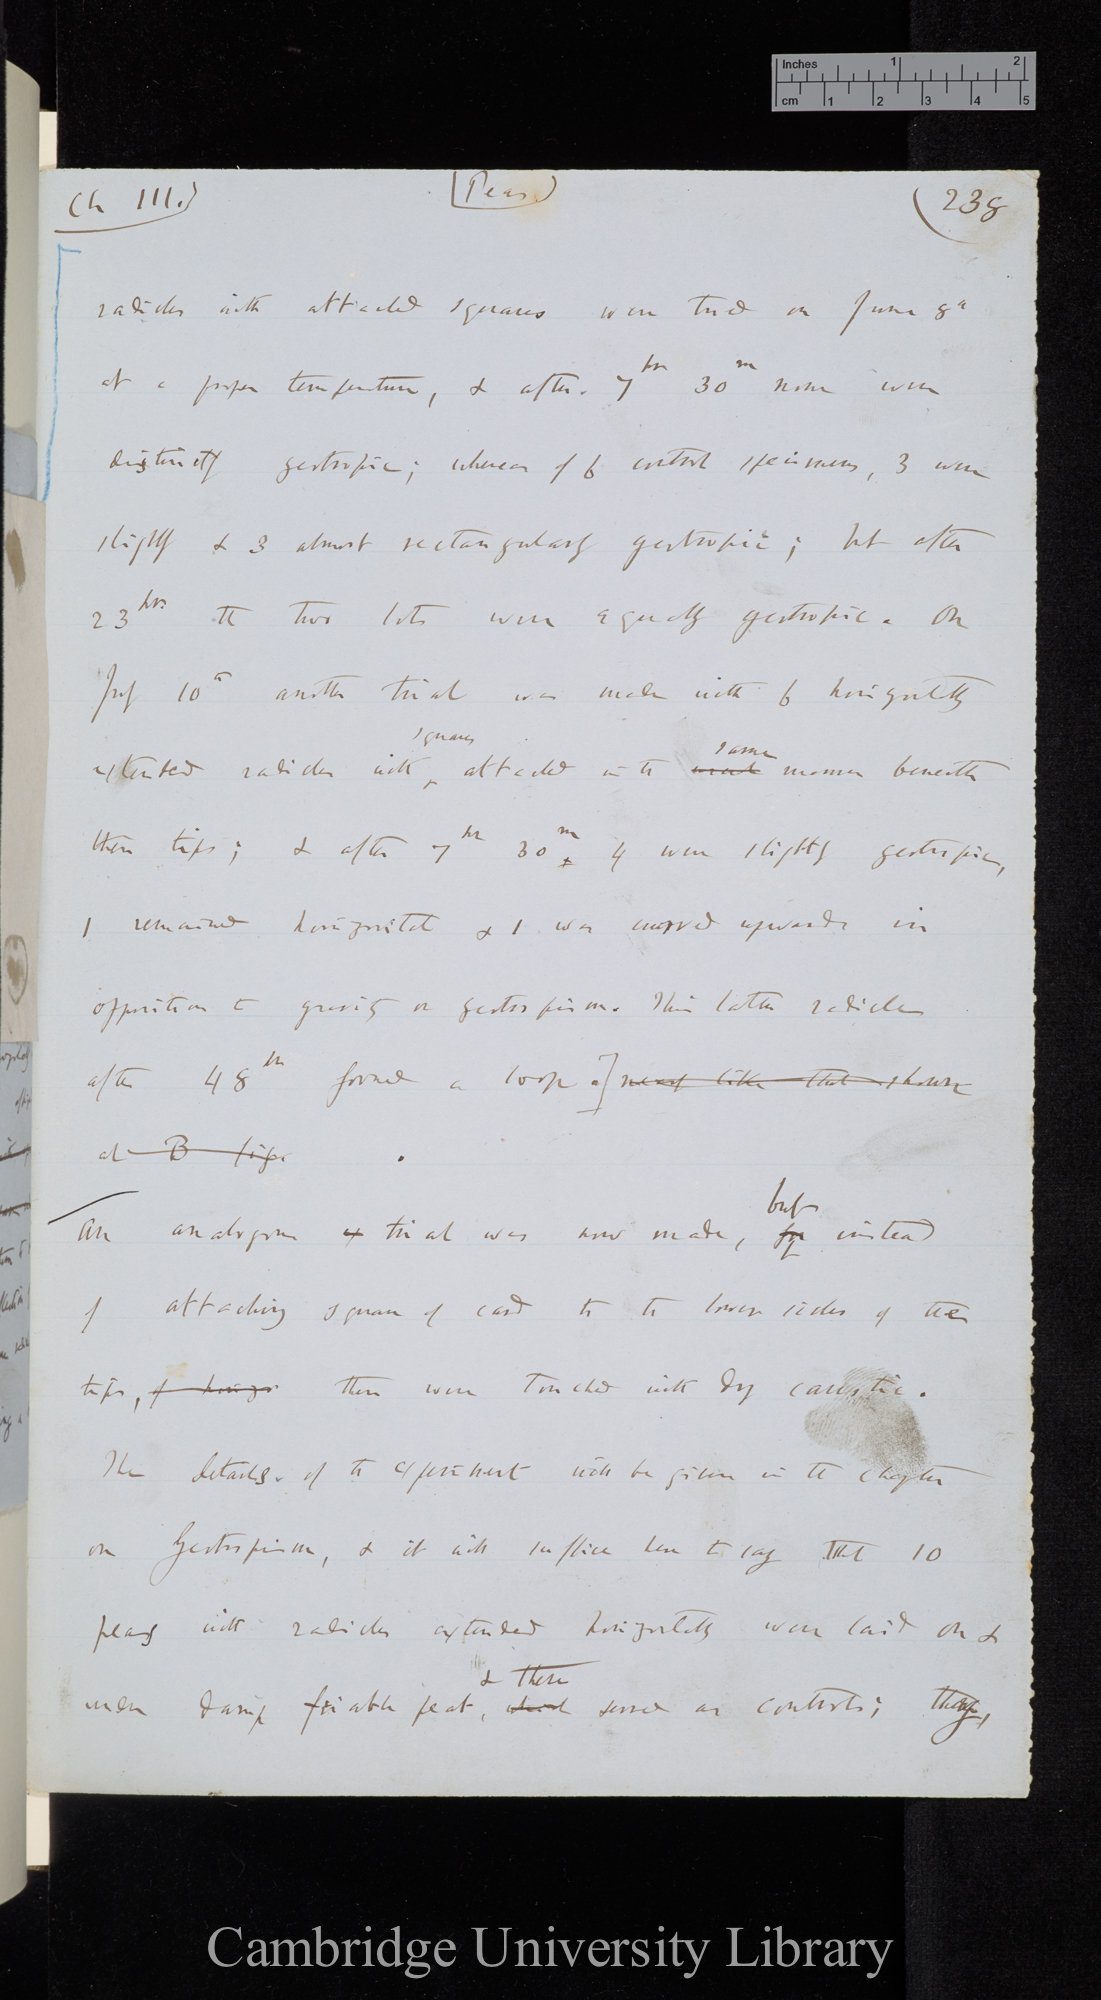 Inches 1 2
cm 1 2 3 4 5
Ch III.)
[Peas)
(238
radicles with attached squares were tried on June 8th
at a proper temperature, & after 7hr 30m none were
distinctly geotropic; whereas of 6 control specimens, 3 were
slightly & 3 almost rectangularly geotropic; but after
23hrs. the two lots were equally geotropic. On
July 10th another trial was made with 6 horizontally
squares same
extended radicles with attached in the manner beneath
their tips; & after 7hr 30m 4 were slightly geotropic,
1 remained horizontal & 1 was curved upwards in
opposition to gravity or geotropism. This latter radicle
after 48hr formed a loop.] nearly like that shown
at B fig.
but
An analogous trial was now made, instead
of attaching squares of card to the lower sides of the
tips, these were touched with dry caustic.
The details of the experiment will be given in the chapter
on Geotropism, & it will suffice here to say that 10
peas with radicles extended horizontally were laid on &
& these
under damp friable peat, which served as controls;
Cambridge University Library